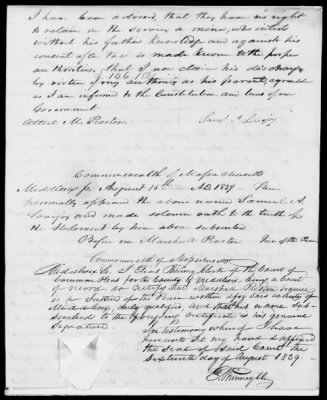 I have been advised, that they have no right
to retain in the service a minor, who enlists
without his father knowledge and against his
consent after he is made known to the proper
authorities, that I now claim his discharge
by virtue of my authority as his parent, agreeable
as I am informed to the Constitution and laws of our
Government.
Attest M. Preston.
Commonwealth of Massachusetts
Middlesex ss August 15th A.D. 1839 - Then
personally appeared the above named Samuel A.
and made solemn oath to the truth of
the Statement by him above subscribed
Before me Marshall Preston Jus. of the Peace
Commonwealth of Massachusetts
Middlesex Ss. I Elias Phinney Clerk of the Court of
Common Pleas for the County of Middlesex, being a Court
of record do certify that Marshall Preston Esquire
is a Justice of the Peace within & for said county of
Middlesex, duly qualified and that his name sub-
scribed to the foregoing certificate is his genuine
Signature.
In testimony whereof I have
hereunto set my hand & affixed
the Seal of said Court the
Sixteenth day of August 1839.
E. Phinney Clk